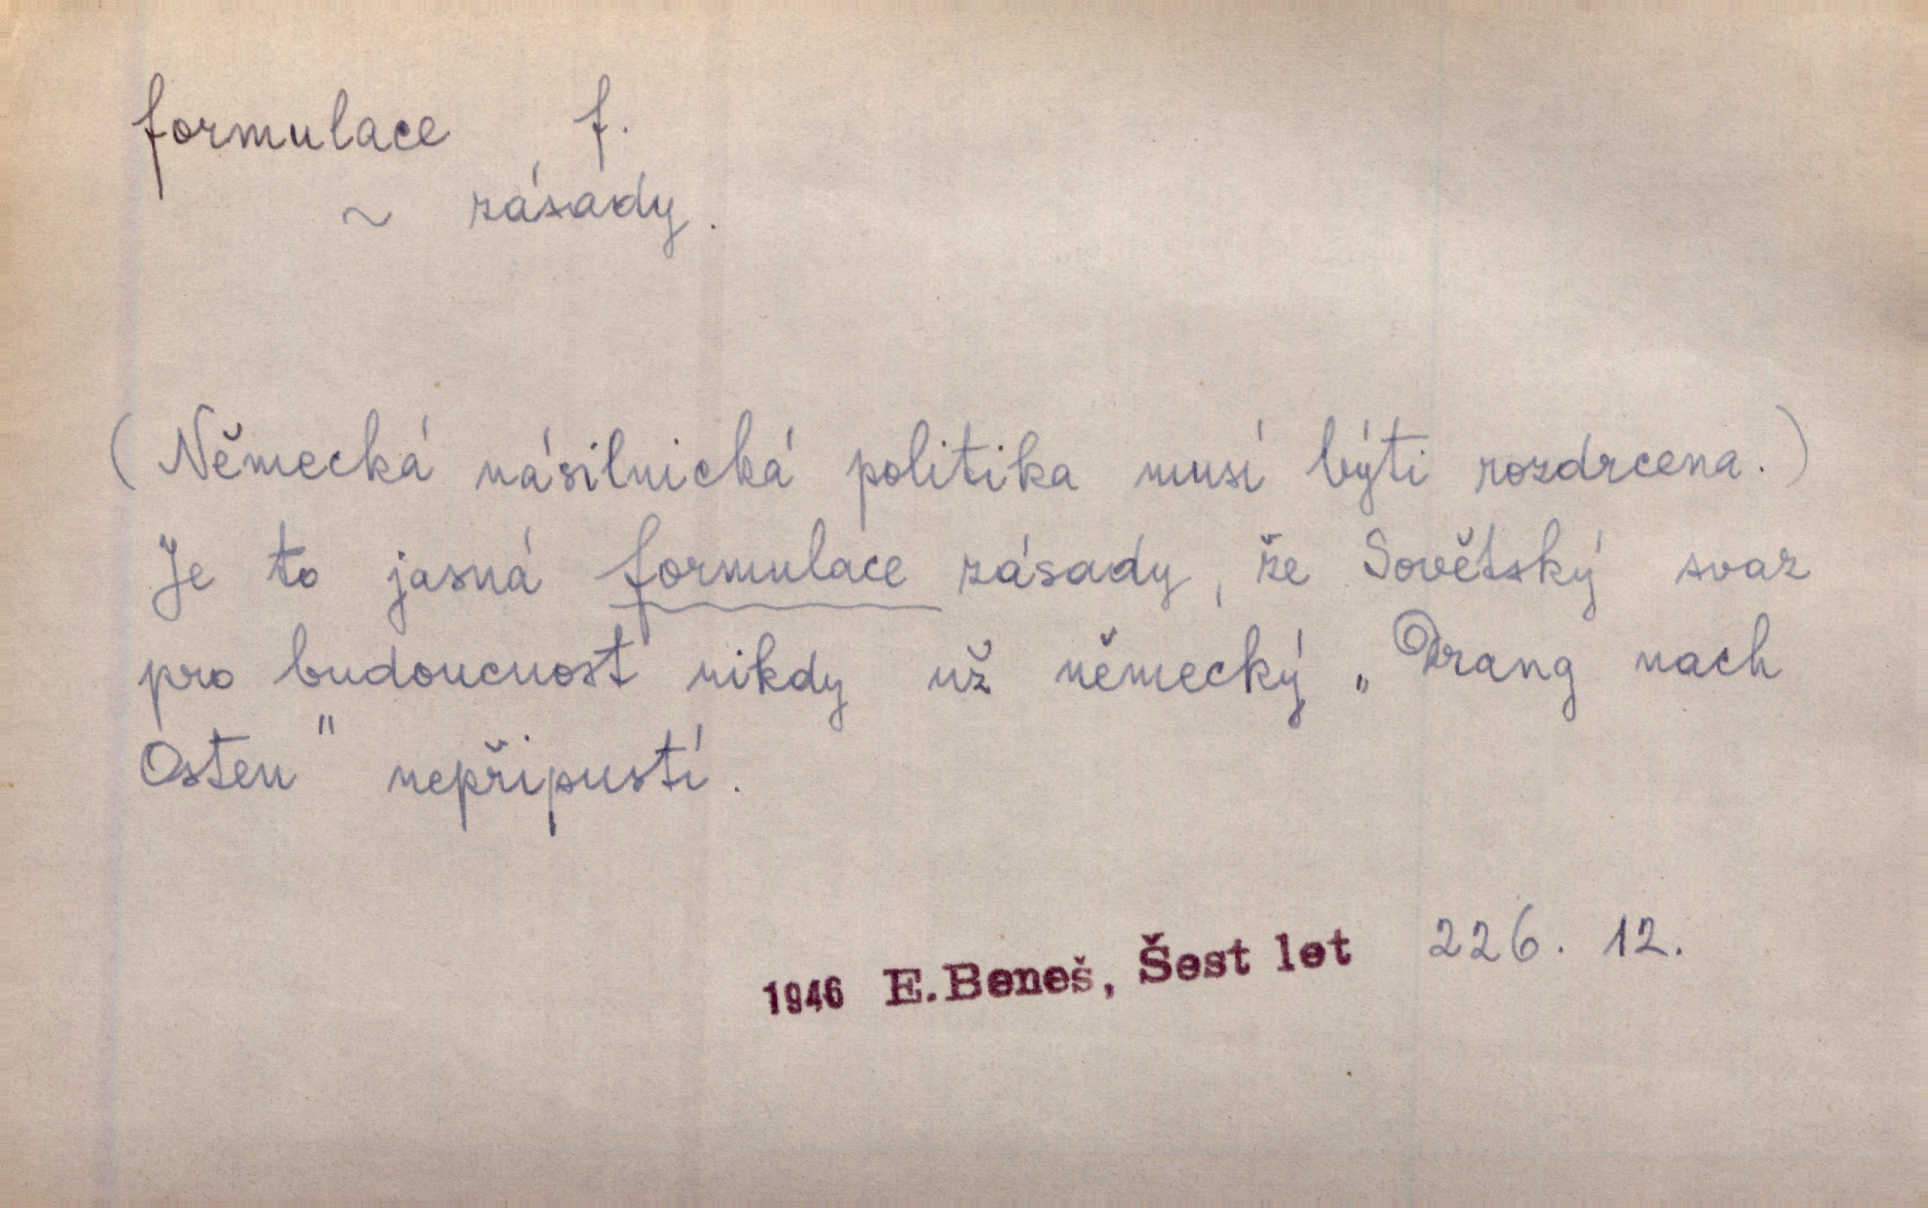 formulace f.
~ zásady.
(Německá násilnická politika musí býti rozdrcena.)
Je to jasná formulace zásady, že Sovětský svaz
pro budoucnost nikdy už německý „Drang nach
Osten" nepřipustí.
1946 E.Beneš, Šest let 226. 12.